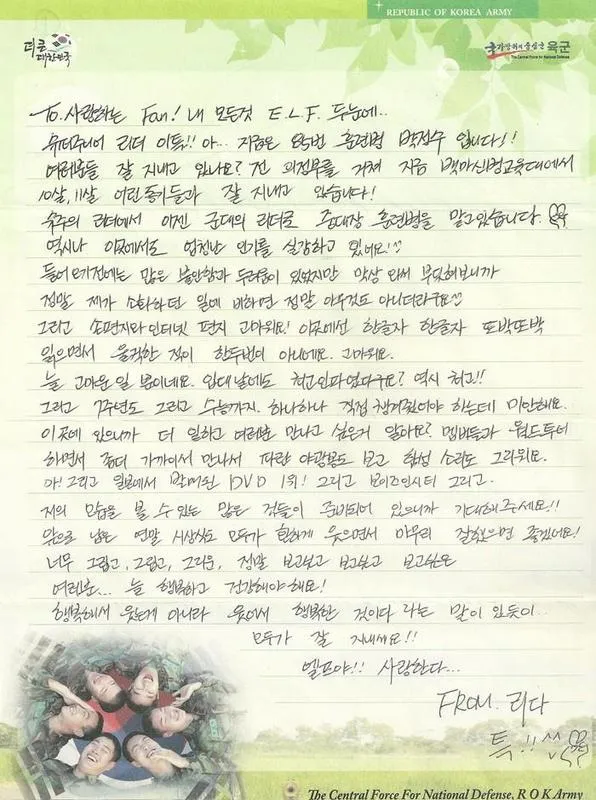 REPUBLIC OF KOREA ARMY
더 큰 대한민국
국가방위의 중심군 육군
The Central Force for National Defense
To. 사랑하는 Fan! 내 모든것 E.L.F. 두눈에..
슈퍼주니어 리더 이특!! 아... 지금은 85번 훈련병 박정수 입니다!!
여러분들 잘 지내고 있나요? 전 306보충대를 거쳐 지금 백마신병교육대에서
10살, 11살 어린 동기들과 잘 지내고 있습니다!
슈주의 리더에서 이젠 군대의 리더로 중대장 훈련병을 맡고있습니다.
역시나 이곳에서도 엄청난 인기를 실감하고 있어요!
들어오기전에는 많은 불안함과 두려움이 있었지만 막상 와서 부딪혀보니까
정말 제가 소화하던 일에 비하면 정말 아무것도 아니더라구요
그리고 손편지와 인터넷 편지 고마워요! 이곳에선 한글자 한글자 또박또박
읽으면서 울컥한 적이 한두번이 아니에요. 고마워요.
늘 고마운일 뿐이네요. 입대날에도 최고인파였다구요? 역시 최고!!
그리고 7주년도 그리고 수능까지. 하나하나 직접 챙겨줬어야 하는데 미안해요.
이곳에 있으니까 더 일하고 여러분 만나고 싶은거 알아요? 멤버들과 월드투어
하면서 좀더 가까이서 만나서 파란 야광봉도 보고 함성 소리도 그리워요.
아! 그리고 일본에서 발매된 DVD 1위! 그리고 보이즈인시티 그리고..
저의 모습을 볼 수 있는 많은 것들이 준비되어 있으니까 기대해주세요!!
앞으로 남은 연말 시상식도 모두가 환하게 웃으면서 마무리 잘했으면 좋겠어요!
너무 그립고, 그립고, 그리운, 정말 보고싶고 보고싶고 보고싶은
여러분... 늘 행복하고 건강해야해요!
행복해서 웃는게 아니라 웃어서 행복한 것이다 라는 말이 있듯이..
모두가 잘 지내세요!!
엘프야!! 사랑한다...
FROM. 리다
특!!
The Central Force For National Defense, R O K Army